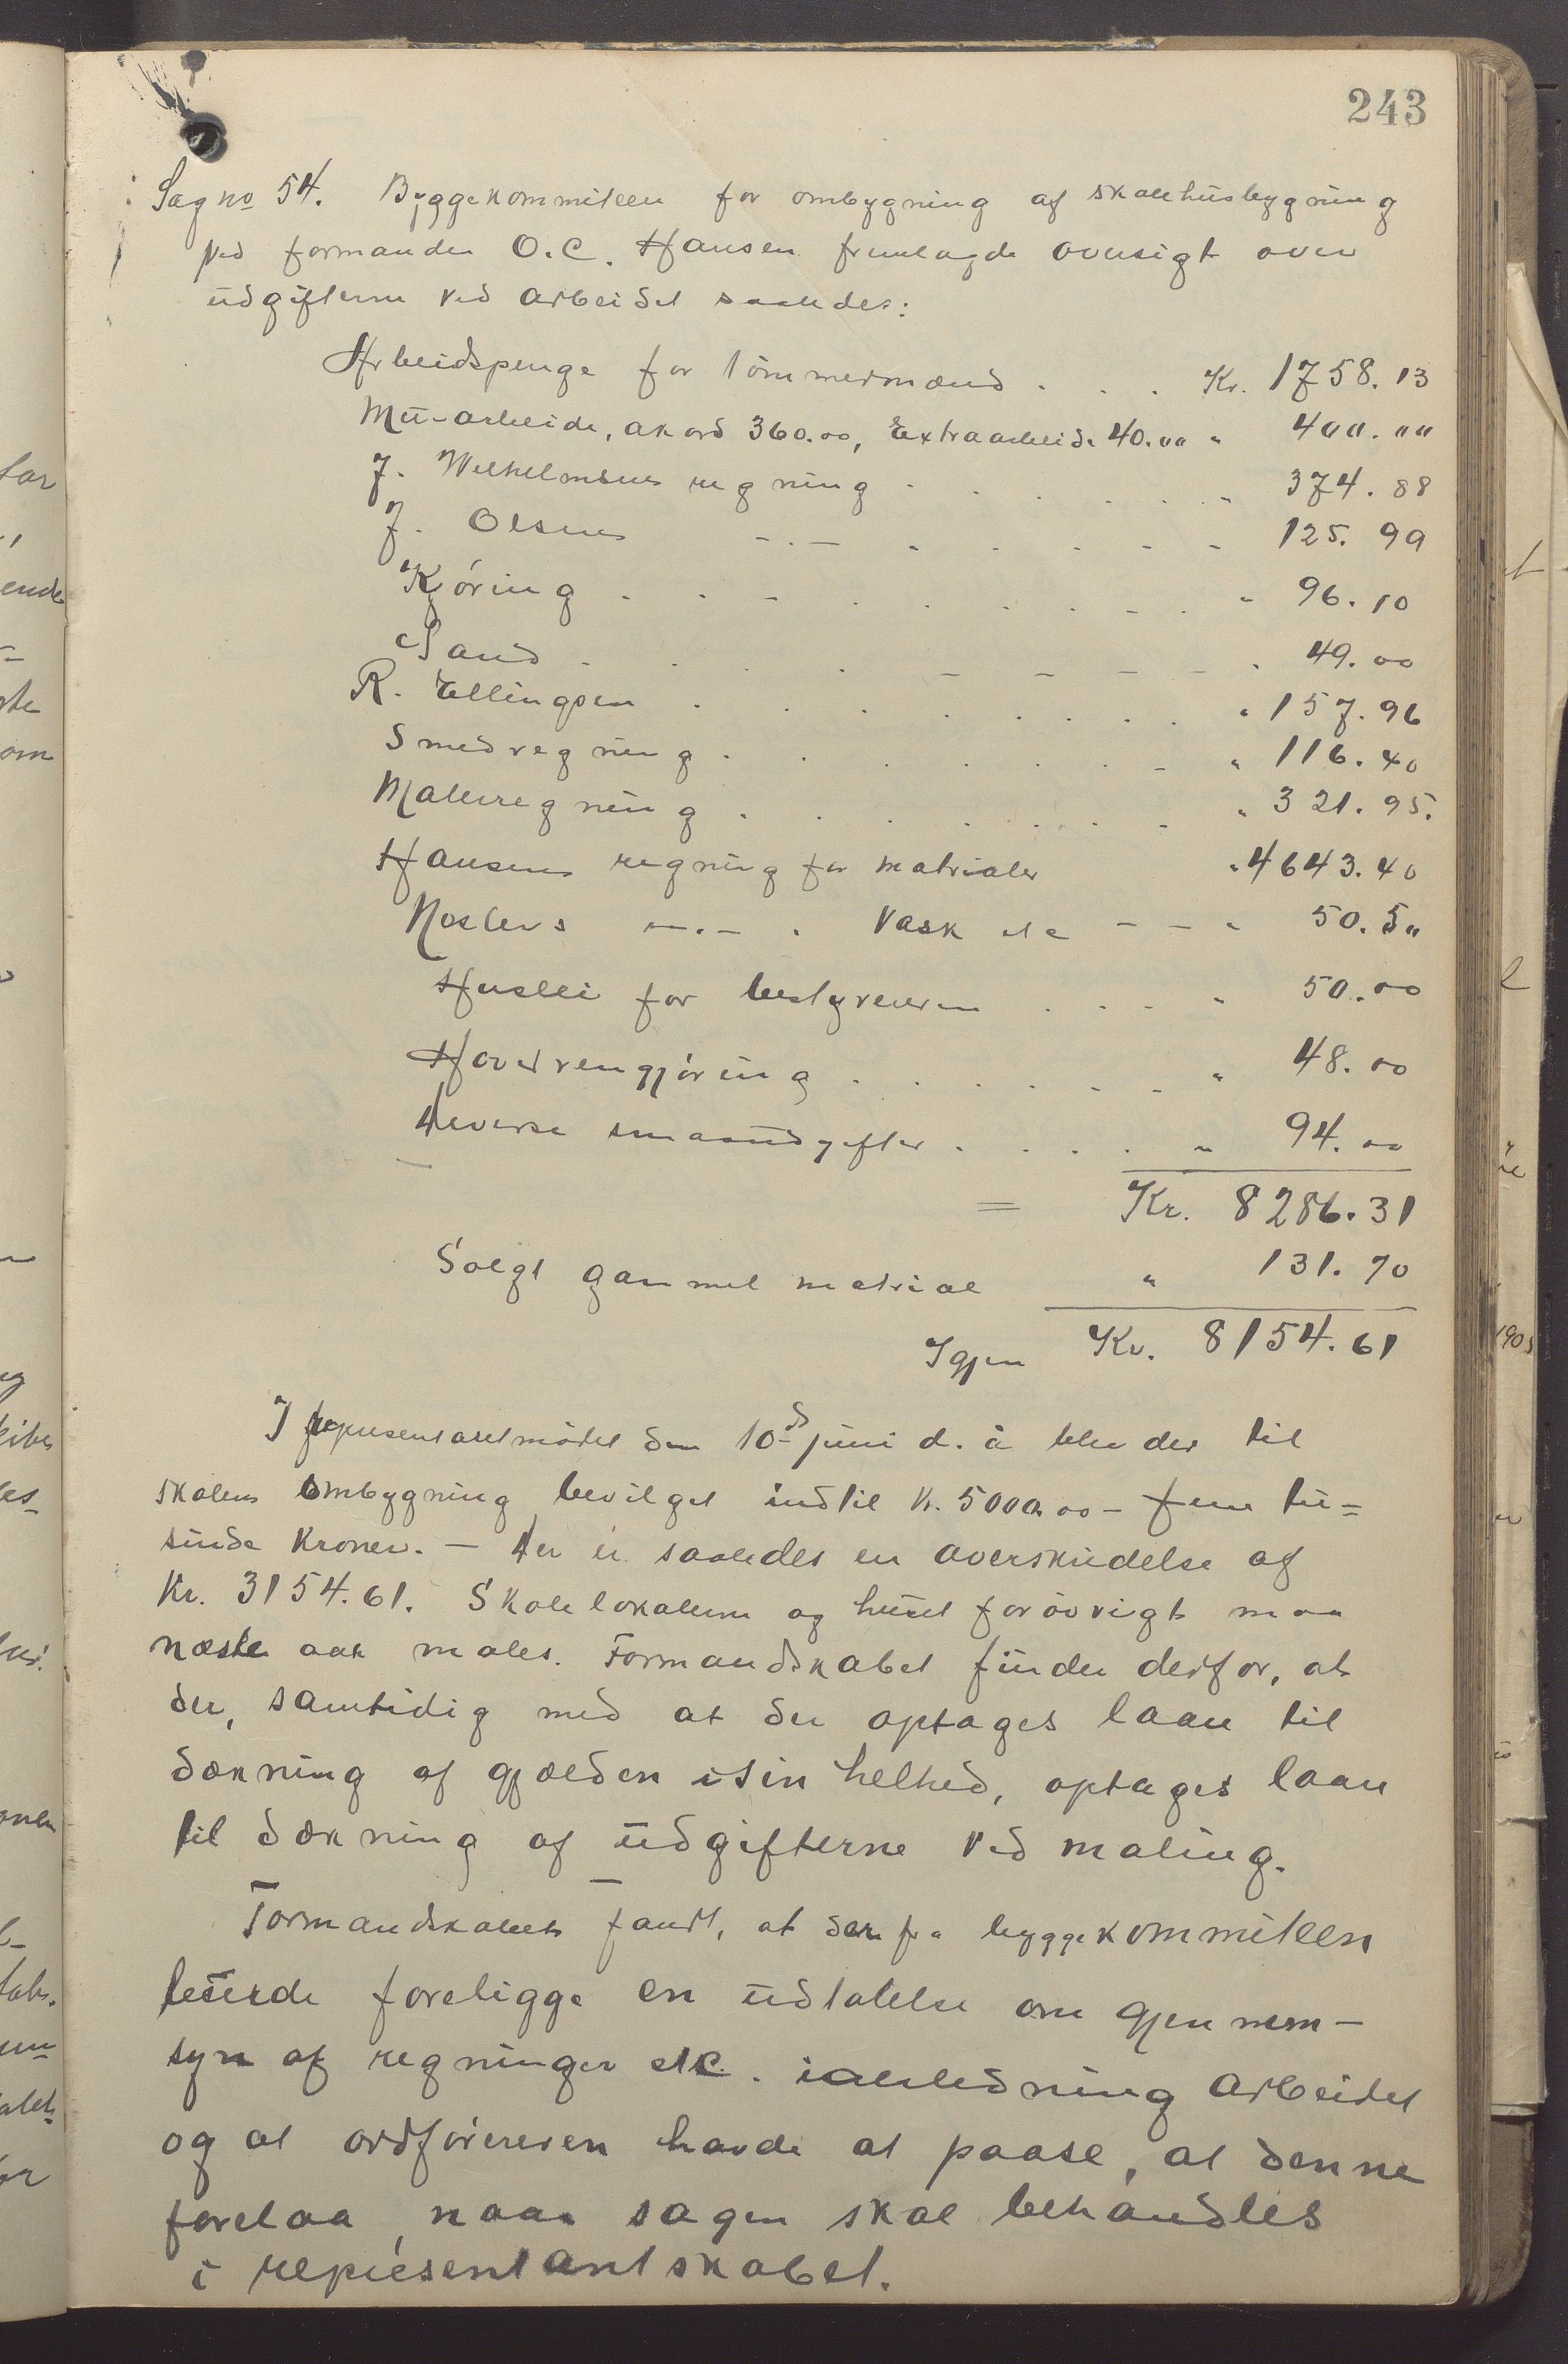 243
Sag no 54. Byggekommiteen for ombygning af skolehusbygning
ved formanden O.C. Hansen fremlagde oversigt over
udgifterne ved arbeidet saaledes:
Arbeidspenge for tömmermænd . . . Kr. 1758.13
Murarbeide, akord 360.00, Extraarbeide 40.00 " 400.00
J. Wilhelmsens regning . . . . . " 374.88
J. Olsens -.- . . . . . " 125.99
Kjöring . . . . . . . . " 96.10
Sand . . . . . . . . " 49.00
R. Ellingsen . . . . . . . . " 157.96
Smedregning . . . . . . . " 116.40
Malerregning . . . . . . . " 321.95.
Hansens regning for matrialer " 4643.40
-.- . Vask etc - - " 50.50
Husleie for bestyreren . . . " 50.00
Hovedrengjöring . . . . . " 48.00
diverse smaaudgifter . . . . " 94.00
= Kr. 8286.31
Solgt gammel matrial " 131.70
Igjen Kr. 8154.61
I repræsentantmödet den 10d juni d. å blev der til
skolens ombygning bevilget indtil Kr. 5000.00 - fem tu=
sinde Kroner. - Der er saaledes en overskridelse af
Kr. 3154.61. Skolelokalerne og huset forövrigt maa
næste aar males. Formandskabet finder derfor, at
der, samtidig med at der optages laan til
dækning af gjælden i sin helhed, optages laan
til dækning af udgifterne ved maling.
Formandskabet fandt, at der fra byggekommiteen
burde foreligge en udtalelse om gjennem-
syn af regninger etc. ianledning arbeidet
og at ordföreren havde at paase, at denne
forelaa, naar sagen skal behandles
i repræsentantskabet.